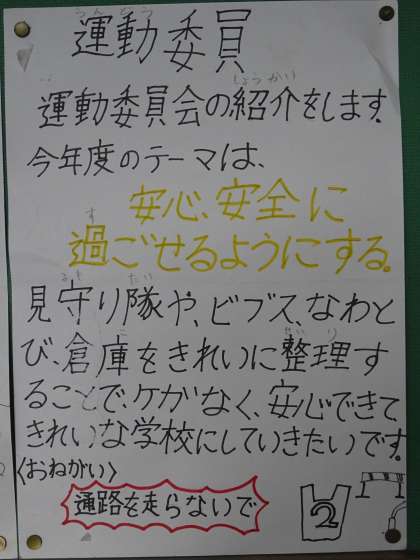 運動委員
運動委員会の紹介をします。
今年度のテーマは、
安心、安全に
過ごせるようにする。
見守り隊や、ビブス、なわと
び、倉庫をきれいに整理す
ることで、ケガなく、安心できて
きれいな学校にしていきたいです。
〈おねがい〉
通路を走らないで
2